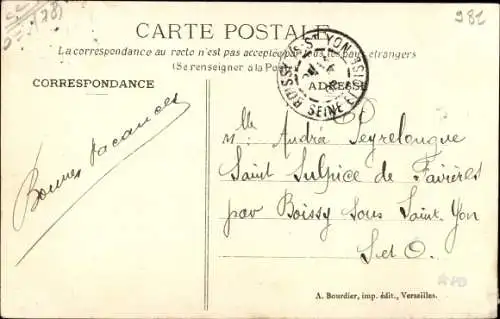 981
CARTE POSTALE
La correspondance au recto n'est pas acceptée par tous les pays étrangers
(Se renseigner à la Poste)
CORRESPONDANCE
ADRESSE
BOISSY-SS-ST YON
SEINE ET OISE
Bonnes vacances
Mlle Andrá Peyrelongue
Saint Sulpice de Favières
par Boissy Sous Saint Yon
S et O.
A. Bourdier, imp. édit., Versailles.